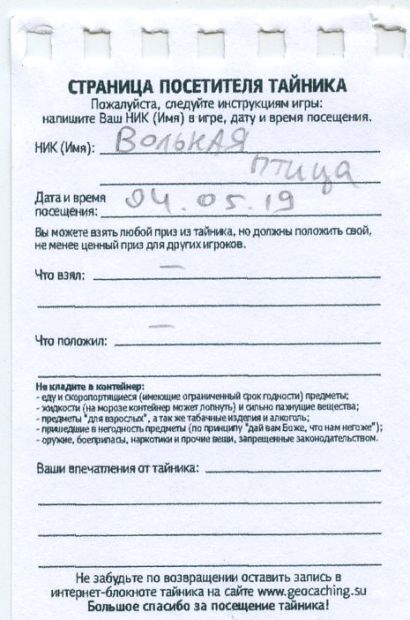 СТРАНИЦА ПОСЕТИТЕЛЯ ТАЙНИКА
Пожалуйста, следуйте инструкциям игры:
напишите Ваш НИК (Имя) в игре, дату и время посещения.
НИК (Имя): ВОЛЬНАЯ
птица
Дата и время
посещения: 04.05.19
Вы можете взять любой приз из тайника, но должны положить свой,
не менее ценный приз для других игроков.
Что взял: —
Что положил: —
Не кладите в контейнер:
- еду и скоропортящиеся (имеющие ограниченный срок годности) предметы;
- жидкости (на морозе контейнер может лопнуть) и сильно пахнущие вещества;
- предметы "для взрослых", а так же табачные изделия и алкоголь;
- пришедшие в негодность предметы (по принципу "дай вам Боже, что нам негоже");
- оружие, боеприпасы, наркотики и прочие вещи, запрещенные законодательством.
Ваши впечатления от тайника:
Не забудьте по возвращении оставить запись в
интернет-блокноте тайника на сайте www.geocaching.su
Большое спасибо за посещение тайника!